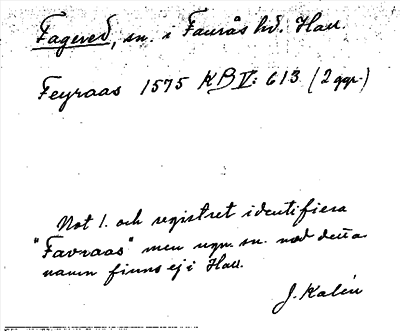 Fagered, sn. i Faurås hd. Hall.
Feyraas 1575 KB V: 613 (2 ggr.)
Not 1. och registret identifiera
"Favraas" men ngn. sn. med detta
namn finns ej i Hall.
J. Kalén